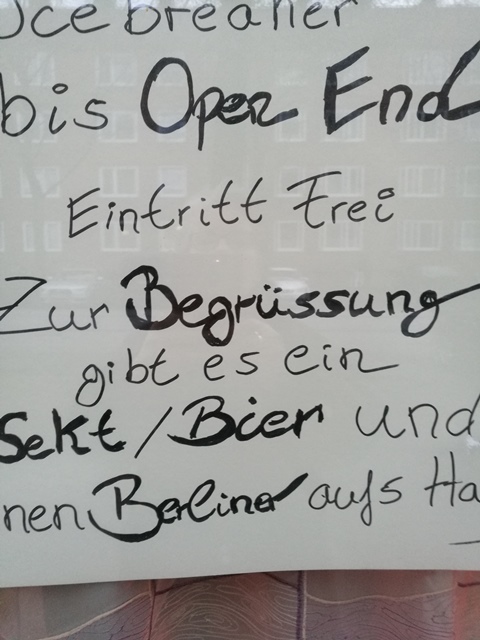 Icebreaker
bis Open End
Eintritt Frei
Zur Begrüssung
gibt es ein
Sekt/Bier und
nen Berliner aufs Ha